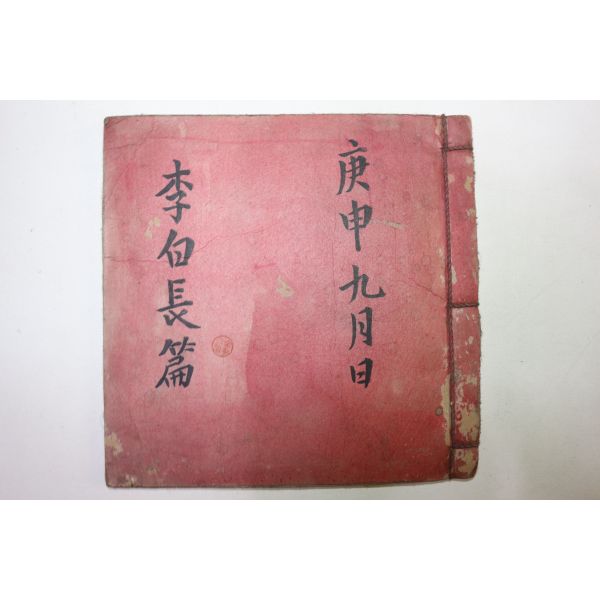 庚申九月日
李白長篇